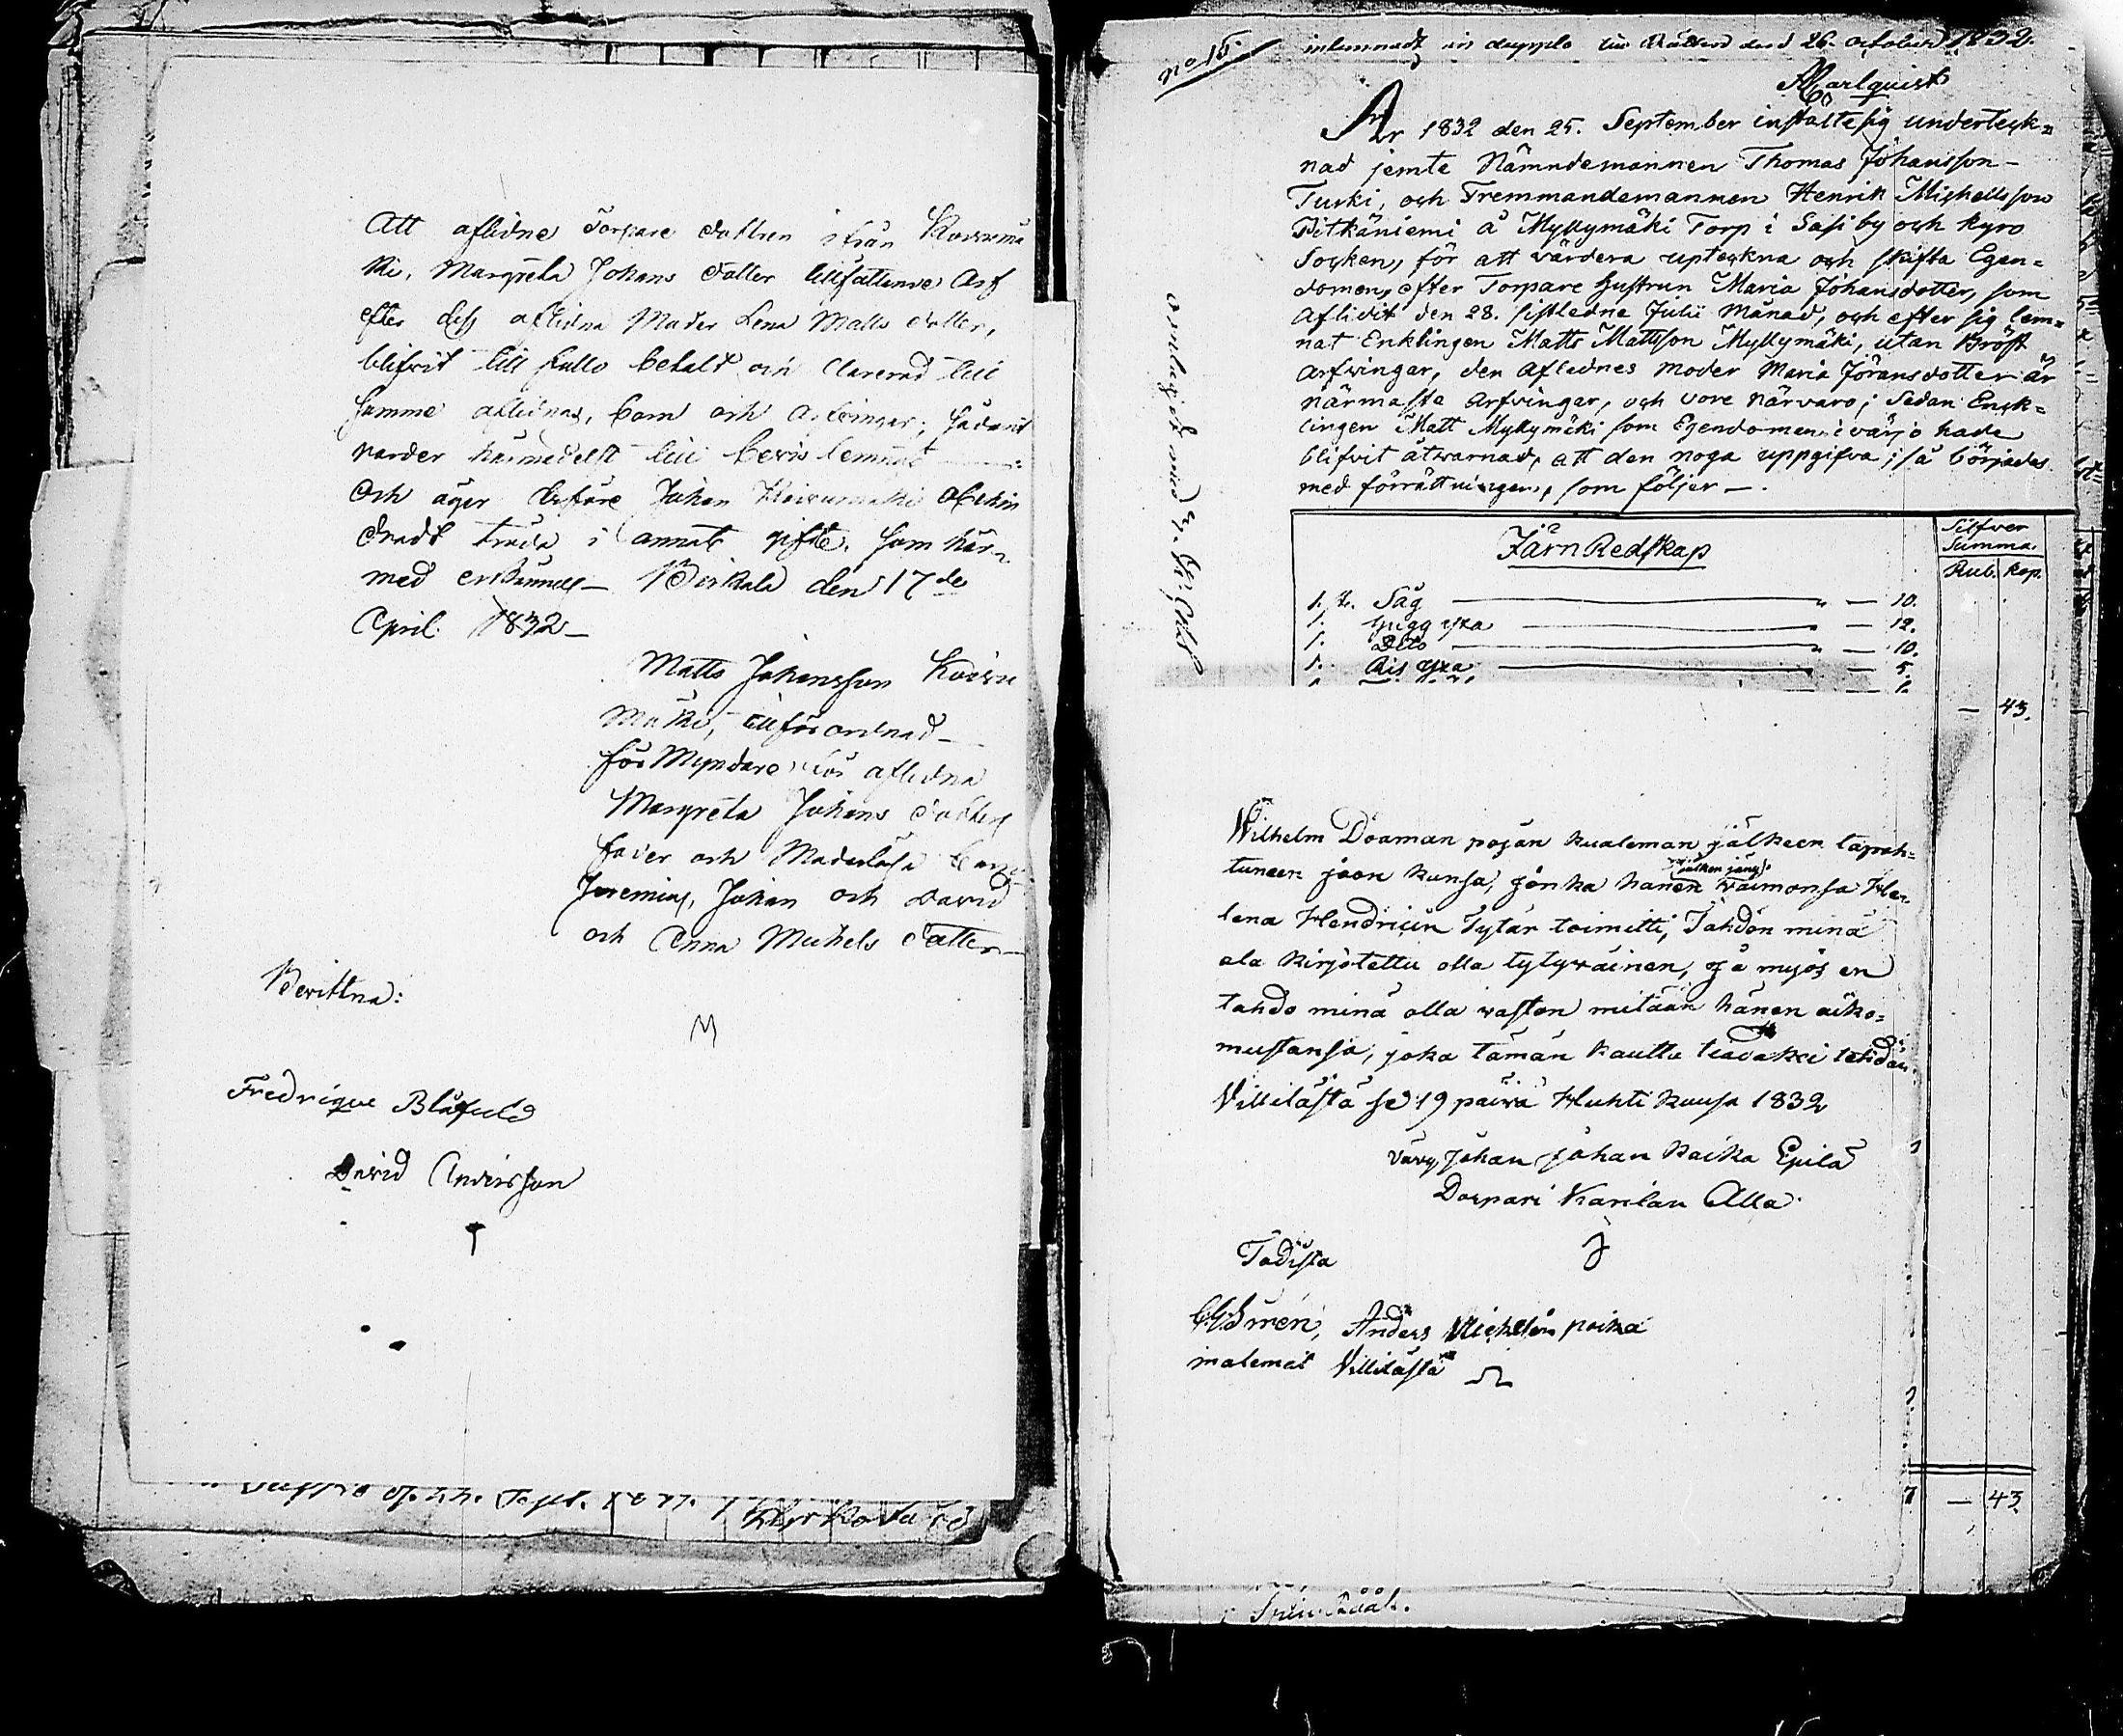 Att aflidne Torpare dottren ifrån Koivumä
ki, Margreta Johans dotter tillfallende Arf
efter dess aflidna Moder Lena Matts dotter,
blifvit till fullo betalt och clarerad till
samme aflidnas, barn och arfvingar; sådant
varder härmedelst till bevis lemnat
och äger derföre Johan Koivumäki obehin
dradt träda i annat gifte. som här-
med erkännes – Birkala den 17de
April 1832 –
Matts Johansson Koivu
mäki, tillförordnad –
förMyndare för aflidna
Margreta Johans dotters
fader och Moderlösa barn
Jeremias, Johan och David
och Anna Michels dotter –
Bevittna:
M
Fredrique Blåfield
David Andersson
Kyrkovärd
no 15.
inlemnadt in dupplo till Rätten den 26. october 1832.
Carlquist
År 1832 den 25. September instälte sig underteck=
nad jemte Nämndemannen Thomas Johansson –
Turki, och Fremmandemannen Henrik Michellsson
Pitkäniemi å Myllymäki Torp i Sasi by och Kyro
Socken, för att värdera upteckna och skifta Egen=
domen, efter Torpare hustrun Maria Johansdotter, som
aflidit den 28. sistledne Julii Månad, och efter sig lem=
nat Enklingen Matts Mattsson Myllymäki, utan Bröst
arfvingar, den aflednes moder Maria Jöransdotter är
närmaste arfvingar, och vore närvaro; Sedan Enck=
lingen Matt Myllymäki som Egendomen i värjo hade
blifvit åtvarnad, att den noga uppgifva; så börjades
med förrättningen, som följer –.
Järn Redskap
Silfver
Summa.
Rub. kop.
1. st. Såg – 10.
1. hugg yxa – 12.
1. Dito – 10.
1. Bil yxa – 5.
– 43.
Wilhelm Doaman pojan kualeman jälkeen tapah=
tuneen joon kansa, jonka hänen jälken jäny waimonsa He=
lena Hendricin Tytär toimitti, Tahdon minä
ala kirjotettu olla tytywäinen, ja myös en
tahdo minä olla wastan mitään hänen aiko=
mustansa, joka tämän kautta tiadaksi tehdän
Villilästä se 19 päivä Huhti kuusa 1832
vävy, Johan johan Poika Epilä
Dorpari Karilan Alla
J
Todista
Anders Michelin poika
molemat Villilästä
– 43